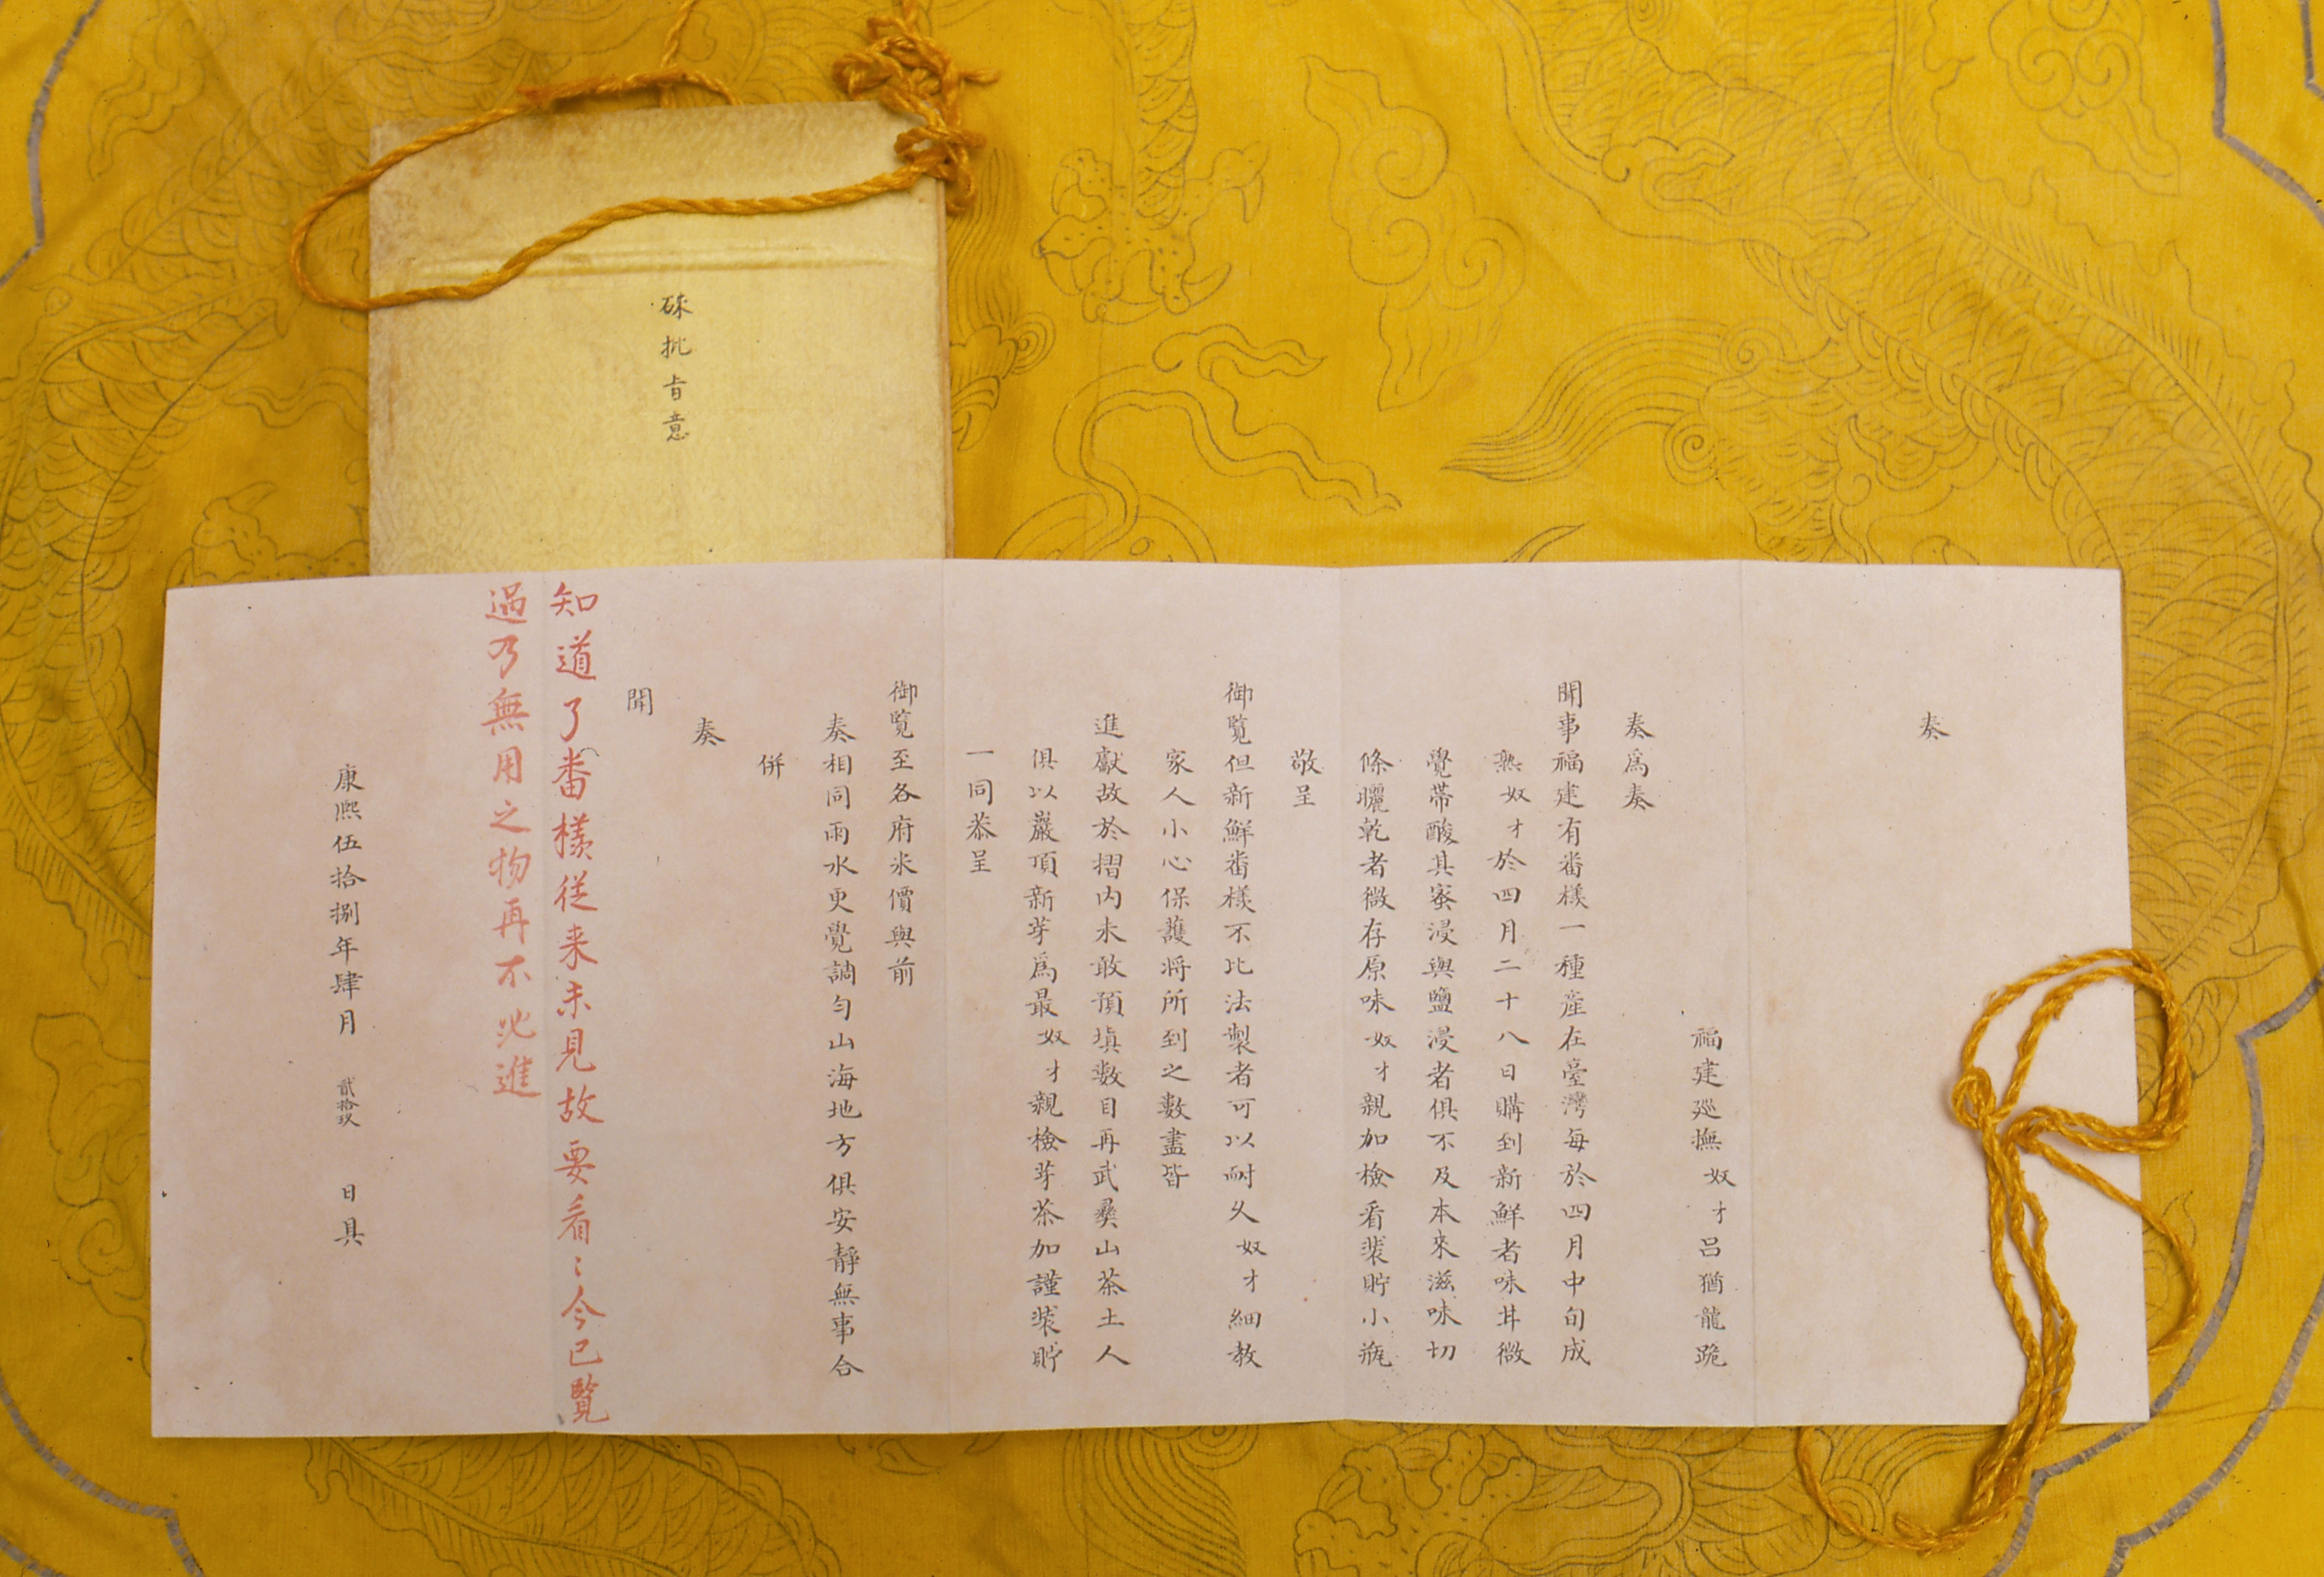 硃批旨意
奏
福建廵撫奴才呂猶龍跪
奏為奏
聞事福建有番樣一種産在臺灣每於四月中旬成
熟奴才於四月二十八日購到新鮮者味甘微
覺帶酸其蜜浸與鹽浸者俱不及本來滋味切
條曬乾者微存原味奴才親加檢看裝貯小瓶
敬呈
御覽但新鮮番樣不比法製者可以耐久奴才細教
家人小心保護將所到之數盡皆
進獻故於摺内未敢預填數目再武彝山茶土人
俱以巖頂新芽為最奴才親檢芽茶加謹裝貯
一同恭呈
御覽至各府米價與前
奏相同雨水更覺調勻山海地方俱安靜無事合
併
奏
聞
知道了番樣從来未見故要看〻今已覽
過乃無用之物再不必進
康熙伍拾捌年肆月 貳拾玖 日具